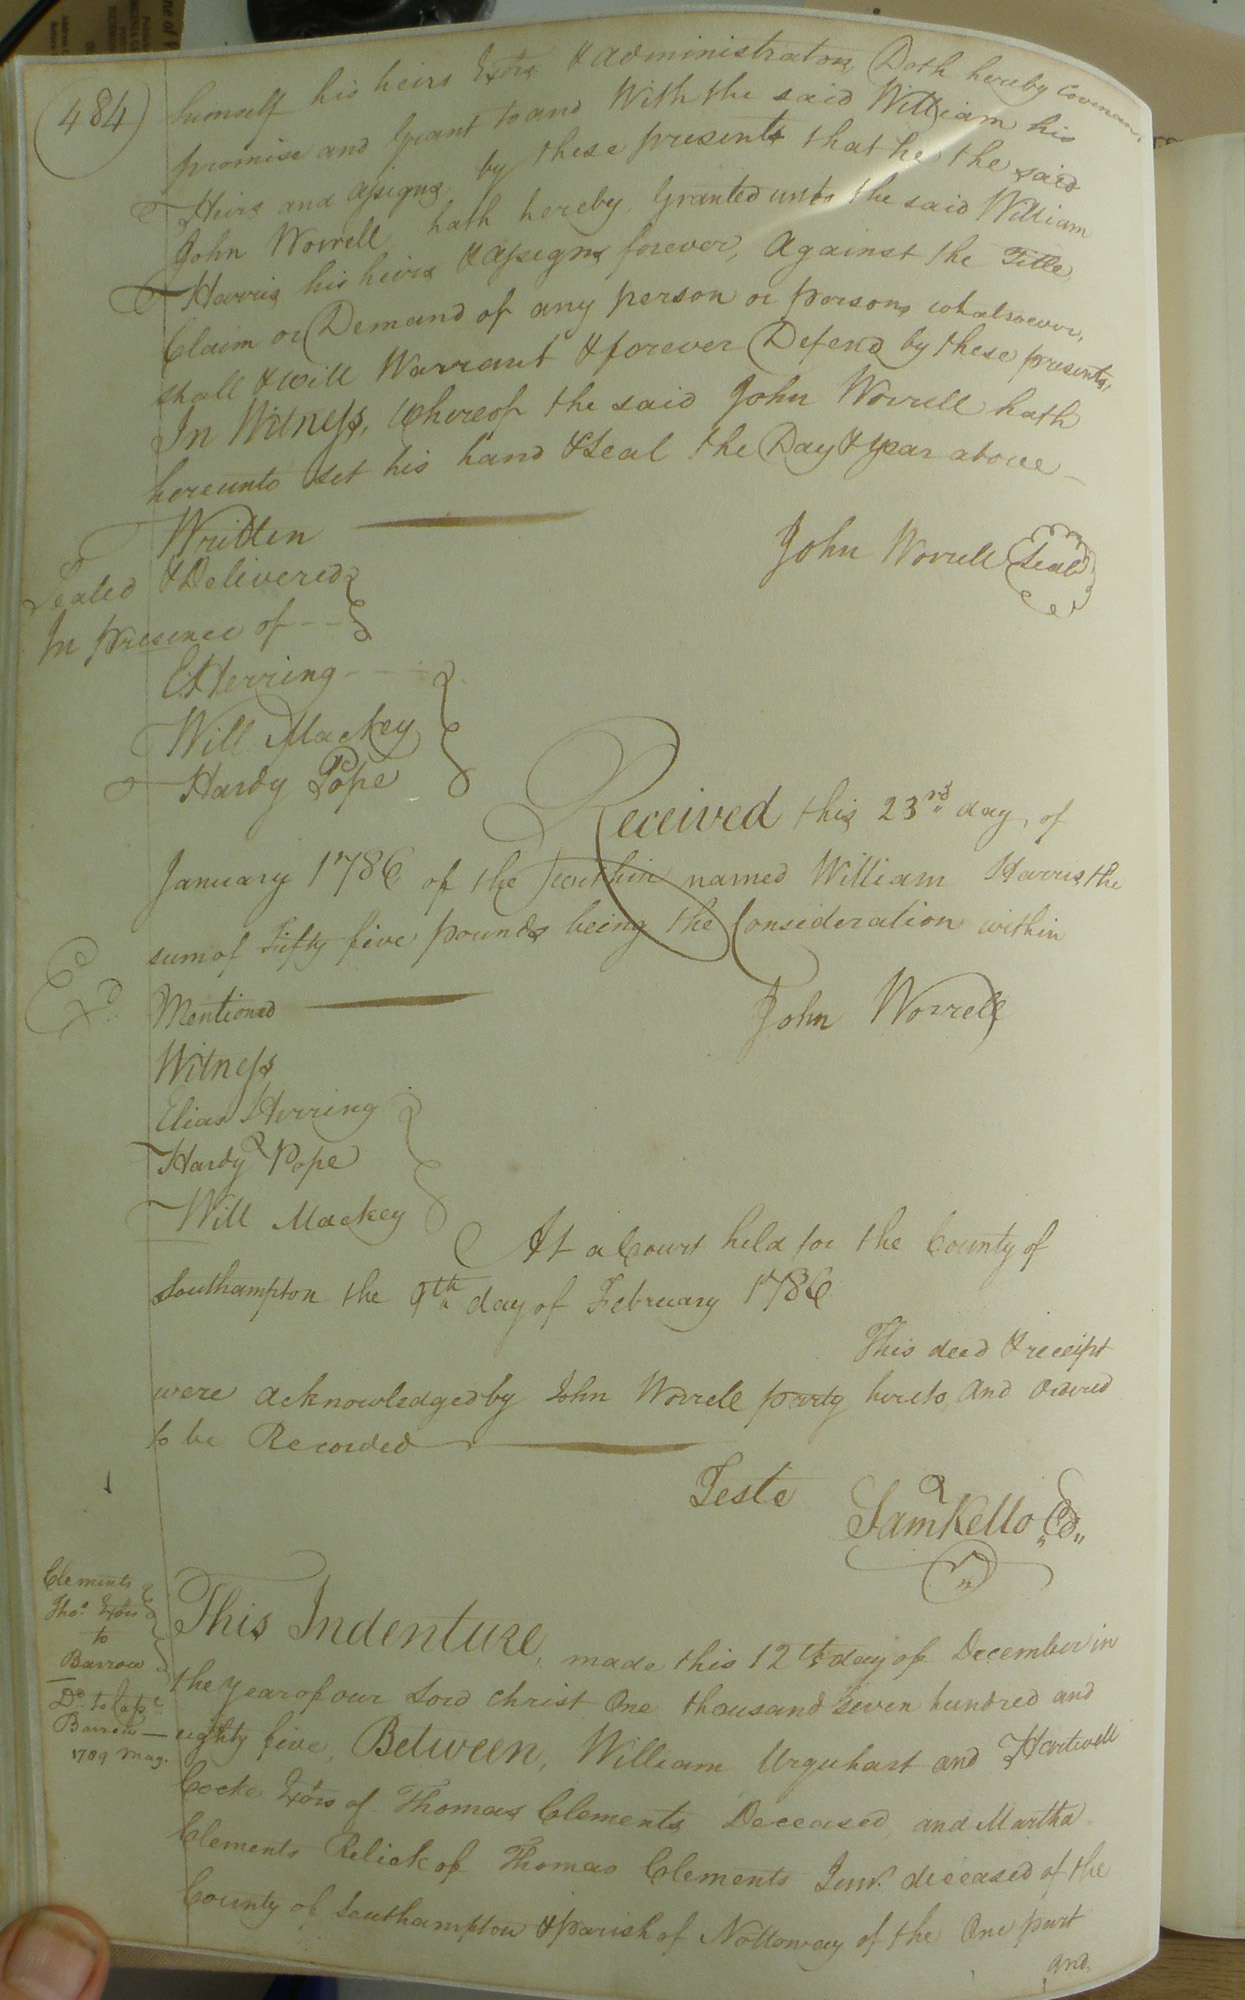 (484)
himself his heirs Exors & administrators, Doth hereby Covenant,
promise and Grant to and With the said William his
Heirs and assigns, by these presents that he the said
John Worrell hath hereby Granted unto the said William
Harris, his heirs & assigns forever, against the Title,
Claim or Demand of any person or persons whatsoever,
shall & will Warrant & forever Defend by these presents,
In Witness, Whereof the said John Worrell hath
hereunto set his hand & Seal the Day & year above
Written
John Worrell Seal
Sealed & Delivered
In presence of
E Herring
Will Mackey
Hardy Pope
Received this 23rd day, of
January 1786, of the within named William Harris, the
sum of Fifty five pounds being the Consideration within
Exd.
Mentioned
John Worrell
Witness
Elias Herring
Hardy Pope
Will Mackey
At a Court held for the County of
Southampton the 9th day of February 1786
This deed & receipt
were acknowledged by John Worrell party hereto, and ordered
to be Recorded
Teste Saml Kello Cl.
Clements
Thos. Exors
to
Barrow
Do. to
Barrow
1789 May.
This Indenture, made this 12th day of December in
the year of our Lord Christ One thousand seven hundred and
eighty five, Between, William Urquhart and Hartwell
Cocke Exors of Thomas Clements Deceased, and Martha
Clements Relick of Thomas Clements Junr. deceased of the
County of Southampton & parish of Nottoway of the One part
and